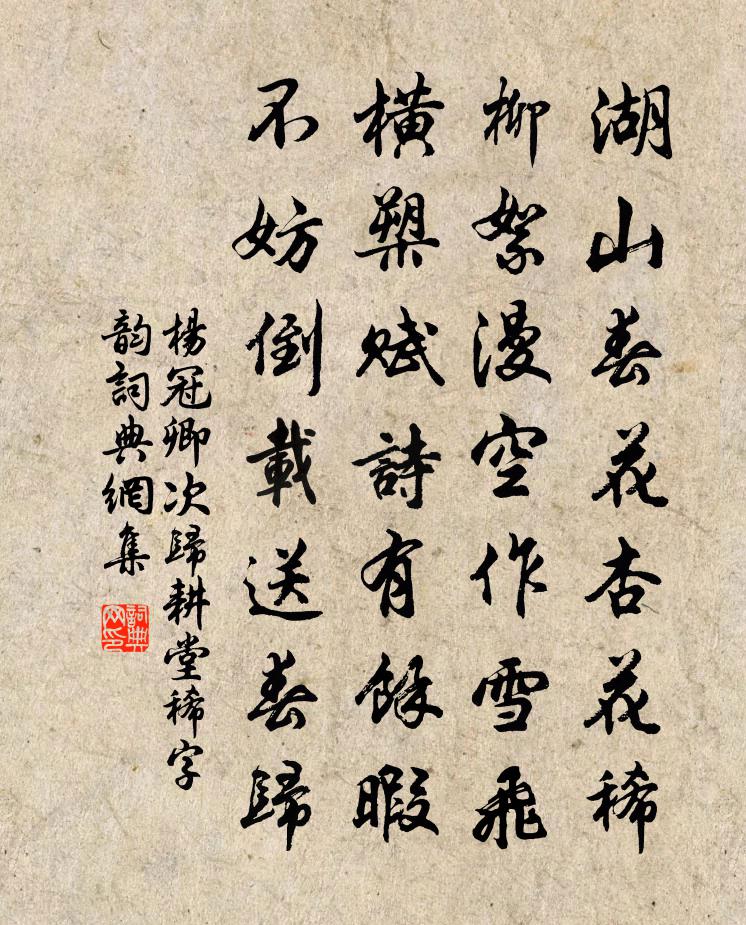 湖山春花杏花稀
柳絮漫空作雪飛
橫槊賦詩有餘暇
不妨倒載送春歸
楊冠卿次歸耕堂稀字
韵詞典網集
詞典網印